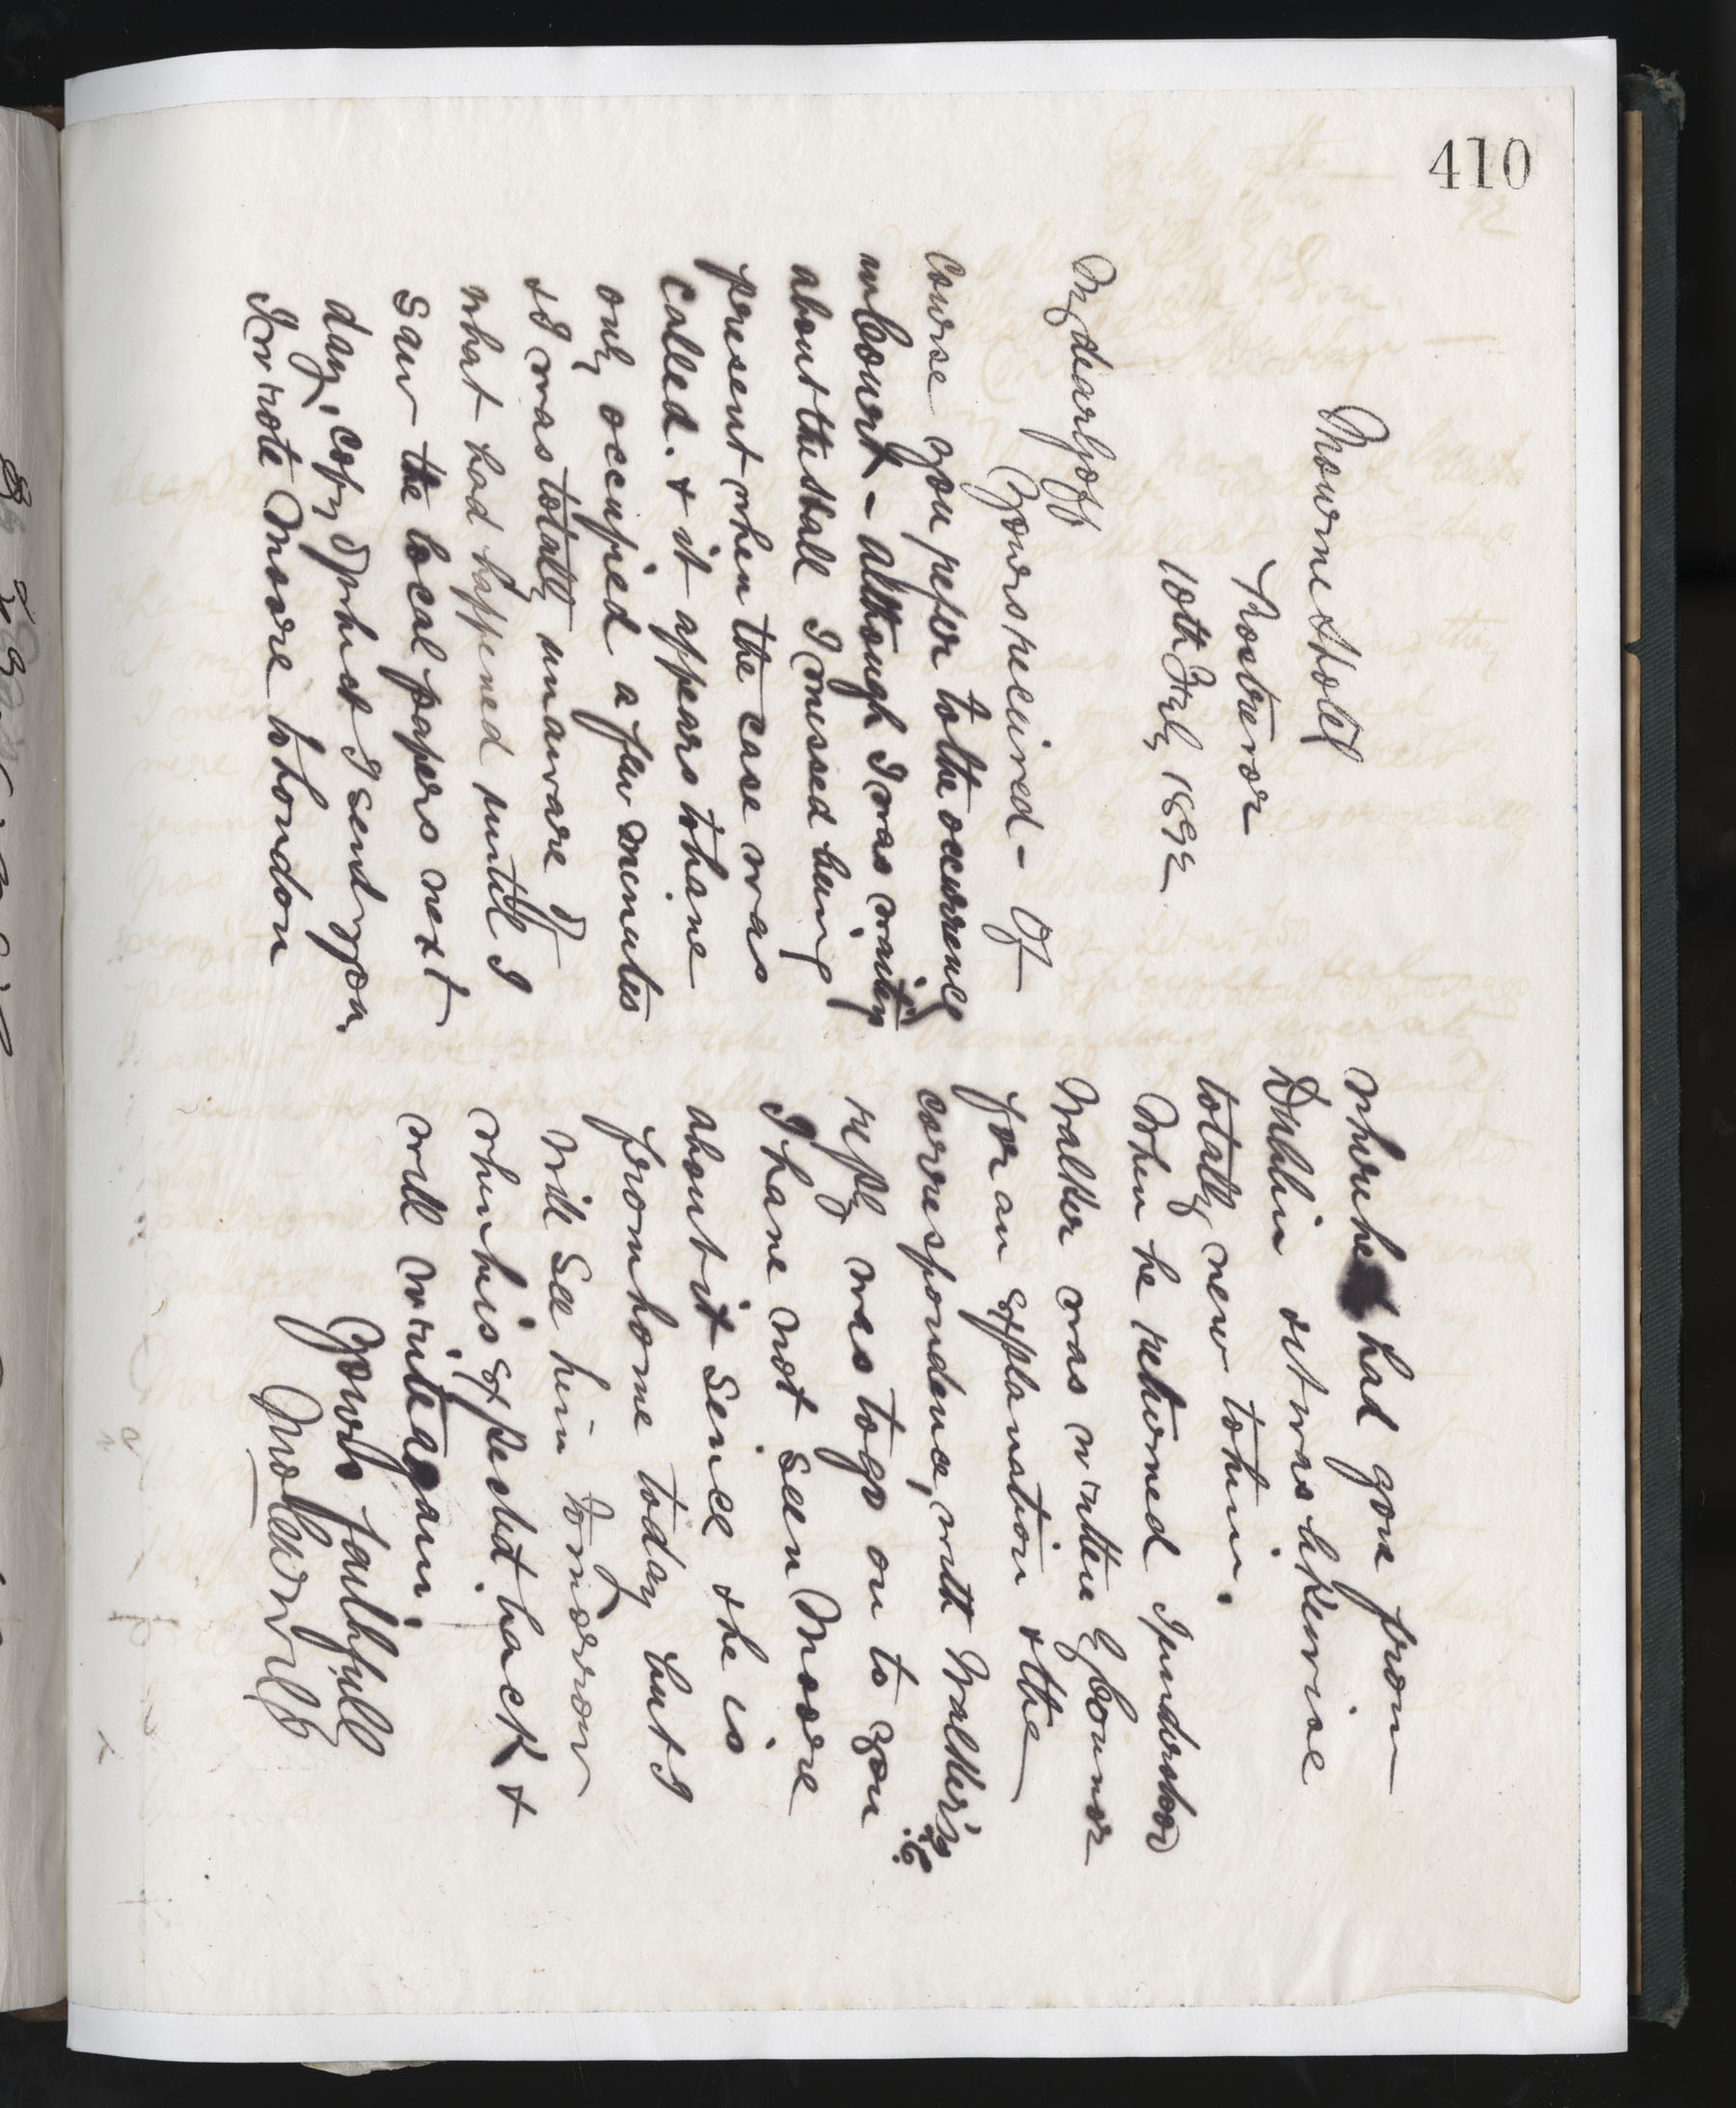 410
Mourne Hotel
Rostrevor
10th Feb, 1892
My dear Goff
Yours received - Of
course you refer to the occurrence
in Court - although I was waiting
about the stall I missed being
present when the case was
called. & it appears to have
only occupied a few minutes
& I was totally unaware of
what had happened until I
saw the local papers next
day, copy of which I send you,
I wrote Moore to London
where he had gone from
Dublin & it was likewise
totally new to him.
When he returned I understood
Walker was written by Connor
for an explanation & the
correspondence, with Walker's
reply was to go on to you
I have not seen Moore
about it since & he is
from home today but I
will see him tomorrow
when he is expected back &
will write again.
Yours faithfully